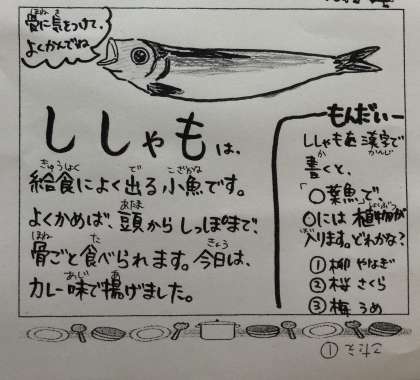 骨に気をつけて、
よくかんでね
ししゃもは、
給食によく出る小魚です。
よくかめば、頭からしっぽまで、
骨ごと食べられます。今日は、
カレー味で揚げました。
もんだい
ししゃもを漢字で
書くと、
「〇葉魚」で
〇には植物が
入ります。どれかな?
①柳 やなぎ
②桜 さくら
③梅 うめ
こたえ ①